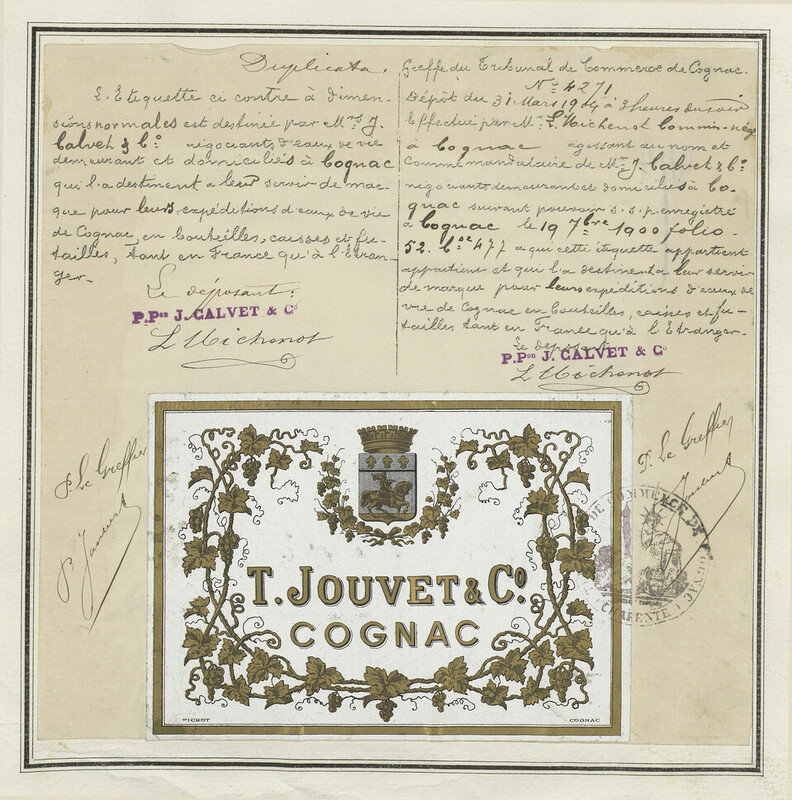 Duplicata.
L'Etiquette ci contre à dimen-
sions normales est destinée par Mrs J.
Calvet & Co négociants d'eaux de vie
demeurant et domiciliés à Cognac
qui l'a destinent a leur servir de mar-
que pour leurs expéditions d'eaux de vie
de Cognac, en bouteilles, caisses et fu-
tailles, tant en France qu'à l'Etran-
ger.
Le déposant:
P.Pon J. CALVET & Co
L Michenot
Greffe du Tribunal de Commerce de Cognac.
No 4271
Dépôt du 31 Mars 1904 à 3 heures du soir
Effectué par Mr L. Michenot Commis-négt
à Cognac agissant au nom et
Comme mandataire de Mrs J. Calvet & Co
négociants demeurant et domiciliés à Co-
gnac suivant pouvoir s.s.p. enregistré
à Cognac le 19 7bre 1900 folio
52. Cse 477 a qui cette étiquette appartient
appartient et qui l'a destinent a leur servir
de marque pour leurs expéditions d'eaux de
vie de Cognac en bouteilles, caisses et fu-
tailles tant en France qu'à l'Etranger.
Le déposant
P.Pon J. CALVET & Co
L Michenot
P. Le Greffier
P. Le Greffier
T. JOUVET & Co
COGNAC
PICHOT
COGNAC
DE COMMERCE DE COGNAC
CHARENTE